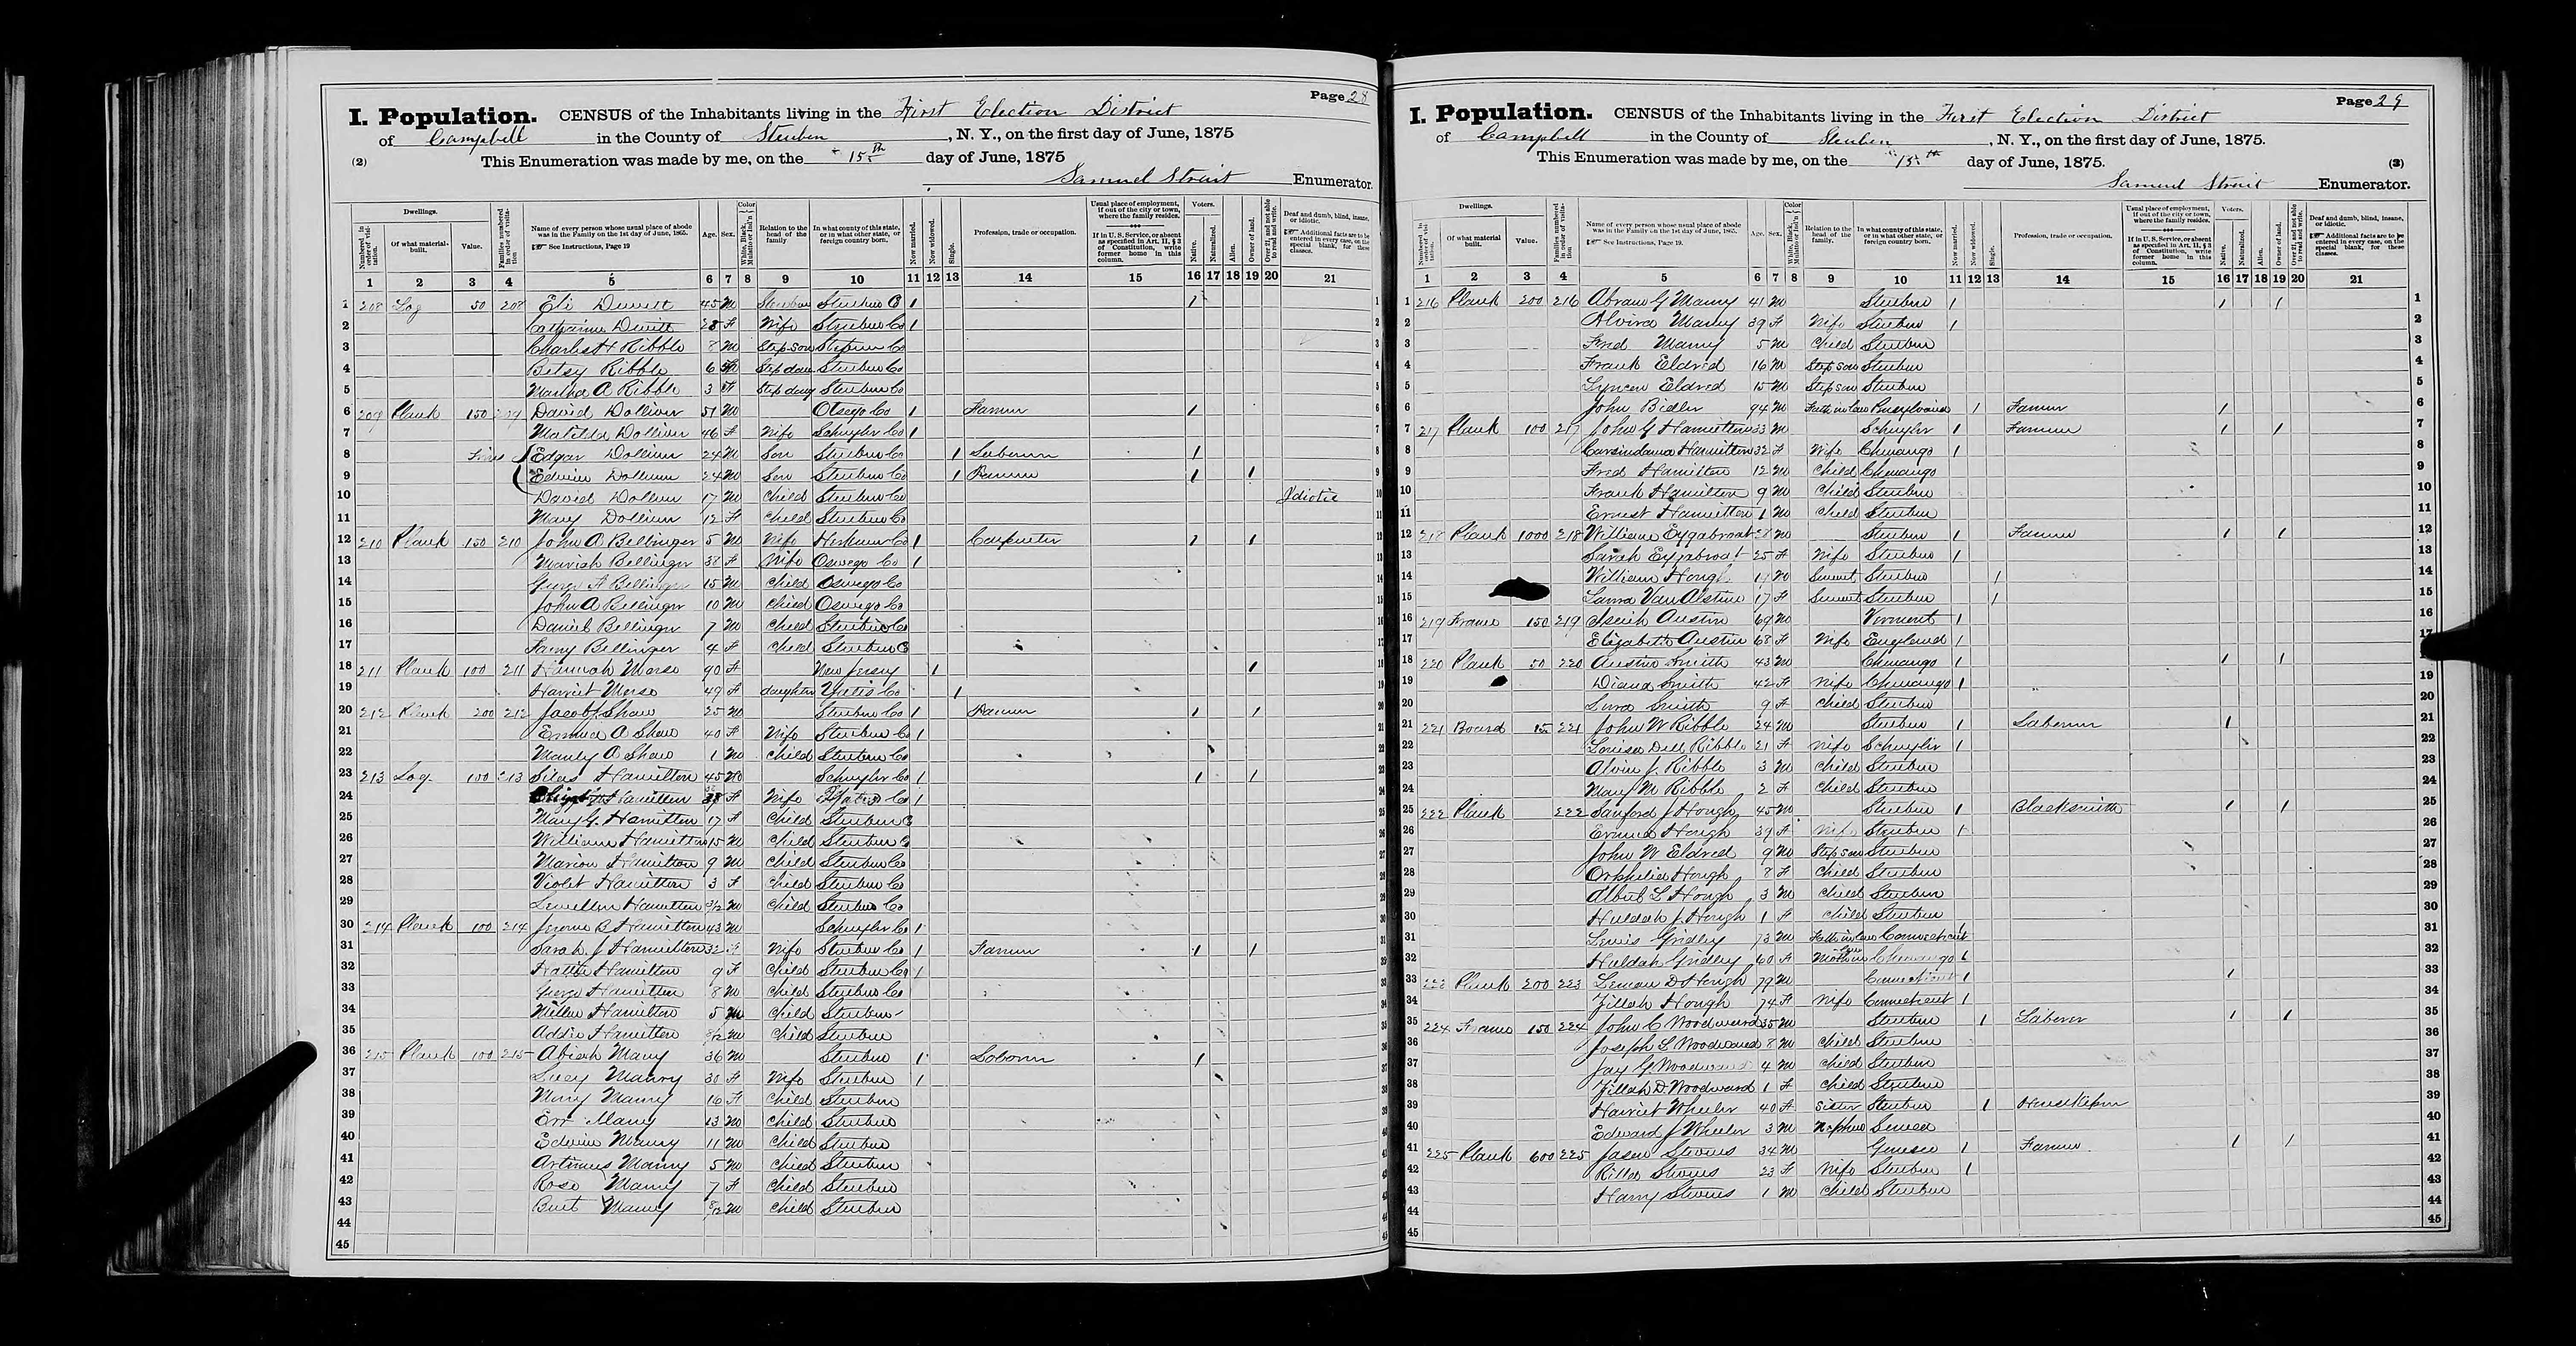 Page 28
I. Population. CENSUS of the Inhabitants living in the First Election District
of Campbell in the County of Steuben, N. Y., on the first day of June, 1875
(2) This Enumeration was made by me, on the 15th day of June, 1875
Samuel Strait Enumerator.
Dwellings. Color Usual place of employment, if out of the city or town, where the family resides. Voters. Deaf and dumb, blind, insane, or idiotic.
Numbered in order of visitation. Of what material built. Value. Families numbered in order of visitation Name of every person whose usual place of abode was in the Family on the 1st day of June, 1865. See Instructions, Page 19 Age. Sex. White, Black, Mulatto or Ind'n Relation to the head of the family In what county of this state, or in what other state, or foreign country born. Now married. Now widowed. Single. Profession, trade or occupation. If in U. S. Service, or absent as specified in Art. II, § 3 of Constitution, write former home in this column. Native. Naturalized. Alien. Owner of land. Over 21, and not able to read and write. Additional facts are to be entered in every case, on the special blank, for these classes.
1 2 3 4 5 6 7 8 9 10 11 12 13 14 15 16 17 18 19 20 21
1 208 Log 50 208 Eli Dewitt 45 M Steuben Co 1 1
2 Catharine Dewitt 28 F Wife Steuben Co 1
3 Charles H Ribble 8 M Step son Steuben Co
4 Betsy Ribble 6 Step dau Steuben Co
5 Martha A Ribble 3 F Step daug Steuben Co
6 209 Plank 150 209 David Dolliver 51 M Otsego Co 1 Farmer 1
7 Matilda Dolliver 46 F Wife Schuyler Co 1
8 Edgar Dolliver 24 M Son Steuben Co 1 Laborer 1
9 Edwin Dolliver 24 M Son Steuben Co 1 Farmer 1 1
10 David Dolliver 17 M Child Steuben Co Idiotic
11 Mary Dolliver 12 F Child Steuben Co
12 210 Plank 150 210 John A Bellinger 5 M Wife Herkimer Co 1 Carpenter 1 1
13 Mariah Bellinger 38 F Wife Oswego Co 1
14 George A Bellinger 15 M Child Oswego Co
15 John A Bellinger 10 M Child Oswego Co
16 Daniel Bellinger 7 M Child Steuben Co
17 Bellinger 4 F Child Steuben Co
18 211 Plank 100 211 Hannah Morse 90 F New Jersey 1 1
19 Harriet Morse 49 F daughter Yates Co 1
20 212 Plank 200 212 Jacob J. Shaw 25 M Steuben Co 1 Farmer 1 1
21 Emma A Shaw 40 F Wife Steuben Co 1
22 Manly A Shaw 1 M Child Steuben Co
23 213 Log 100 213 Silas Hamilton 45 M Schuyler Co 1 1 1
24 Hamilton 38 F Wife Yates Co 1
25 Mary G. Hamilton 17 F Child Steuben Co
26 William Hamilton 15 M Child Steuben Co
27 Marion Hamilton 9 M Child Steuben Co
28 Violet Hamilton 3 F Child Steuben Co
29 Lewellen Hamilton 3/12 M Child Steuben Co
30 214 Plank 100 214 Jerome B Hamilton 43 M Schuyler Co 1
31 Sarah J Hamilton 32 F Wife Steuben Co 1 Farmer 1 1
32 Hattie Hamilton 9 F Child Steuben Co 1
33 George Hamilton 8 M Child Steuben Co
34 Hamilton 5 M Child Steuben
35 Addie Hamilton M Child Steuben
36 215 Plank 100 215 Abiah Manry 36 M Steuben 1 Laborer 1
37 Lucy Manry 30 F Wife Steuben 1
38 Manry 16 F Child Steuben
39 Manry 13 M Child Steuben
40 Edwin Manry 11 M Child Steuben
41 Artimus Manry 5 M Child Steuben
42 Rose Manry 7 F Child Steuben
43 Burt Manry M Child Steuben
44
45
Page 29
I. Population. CENSUS of the Inhabitants living in the First Election District
of Campbell in the County of Steuben, N. Y., on the first day of June, 1875.
This Enumeration was made by me, on the 15th day of June, 1875. (3)
Samuel Strait Enumerator.
Dwellings. Color Usual place of employment, if out of the city or town, where the family resides. Voters. Deaf and dumb, blind, insane, or idiotic.
Numbered in order of visitation. Of what material built. Value. Families numbered in order of visitation Name of every person whose usual place of abode was in the Family on the 1st day of June, 1865. See Instructions, Page 19. Age. Sex. White, Black, Mulatto or Ind'n Relation to the head of the family. In what county of this state, or in what other state, or foreign country born. Now married. Now widowed. Single. Profession, trade or occupation. If in U. S. Service, or absent as specified in Art. II, § 3 of Constitution, write former home in this column. Native. Naturalized. Alien. Owner of land. Over 21, and not able to read and write. Additional facts are to be entered in every case, on the special blank, for these classes.
1 2 3 4 5 6 7 8 9 10 11 12 13 14 15 16 17 18 19 20 21
1 216 Plank 200 216 Abram G Manry 41 M Steuben 1 1 1
2 Alvira Manry 39 F Wife Steuben 1
3 Fred Manry 5 M Child Steuben
4 Frank Eldred 16 M Step son Steuben
5 Eldred 15 M Step son Steuben
6 John Bidler 94 M Fath in law Pensylvania 1 Farmer 1
7 217 Plank 100 217 John G Hamilton 33 M Schuyler 1 Farmer 1 1
8 Hamilton 32 F Wife Chenango 1
9 Fred Hamilton 12 M Child Chenango
10 Frank Hamilton 9 M Child Steuben
11 Ernest Hamilton 1 M Child Steuben
12 218 Plank 1000 218 William Eygabroat 28 M Steuben 1 Farmer 1 1
13 Sarah Eygabroat 25 F Wife Steuben 1
14 William Hough M Servant Steuben 1
15 Laura Van Alstine 17 F Servant Steuben 1
16 219 Frame 150 219 Austin 69 M Vermont 1
17 Elizabeth Austin 68 F Wife England 1
18 220 Plank 50 220 Austin Smith 43 M Chenango 1 1 1
19 Diana Smith 42 F Wife Chenango 1
20 Smith 9 F Child Steuben
21 221 Board 15 221 John W Ribble 24 M Steuben 1 Laborer 1
22 Louisa Dell Ribble 21 F Wife Schuyler 1
23 Alvin J. Ribble 3 M Child Steuben
24 Mary M Ribble 2 F Child Steuben
25 222 Plank 222 Sanford J Hough 45 M Steuben 1 Blacksmith 1 1
26 Emma Hough 39 F Wife Steuben 1
27 John W Eldred 9 M Step son Steuben
28 Orphelia Hough 8 F Child Steuben
29 Albert L Hough 3 M Child Steuben
30 Huldah J. Hough 1 F Child Steuben
31 Lewis Gridley 73 M Fath in law Connecticut 1
32 Huldah Gridley 60 F Mother in law Chenango 1
33 223 Plank 200 223 Leman D Hough 79 M Connecticut 1 1
34 Zillah Hough 74 F Wife Connecticut 1
35 224 Frame 150 224 John C Woodward 35 M Steuben 1 Laborer 1 1
36 Joseph L Woodward 8 M Child Steuben
37 Jay G. Woodward 4 M Child Steuben
38 Zillah D Woodward 1 F Child Steuben
39 Harriet Wheeler 40 F Sister Steuben 1 House Keeper
40 Edward J Wheeler 3 M Nephew Seneca
41 225 Plank 600 225 Jason Stevens 34 M Genesee 1 Farmer 1 1
42 Stevens 23 F Wife Steuben 1
43 Harry Stevens 1 M Child Steuben
44
45